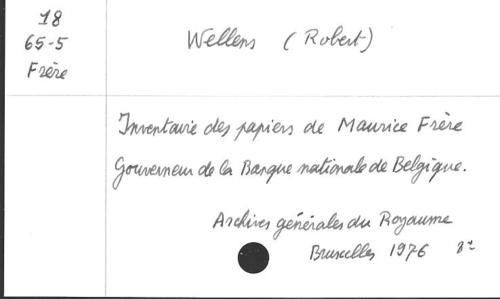 18
65-5
Frère
Wellens (Robert)
Inventaire des papiers de Maurice Frère
Gouverneur de la Banque nationale de Belgique.
Archives générales du Royaume
Bruxelles 1976 8º